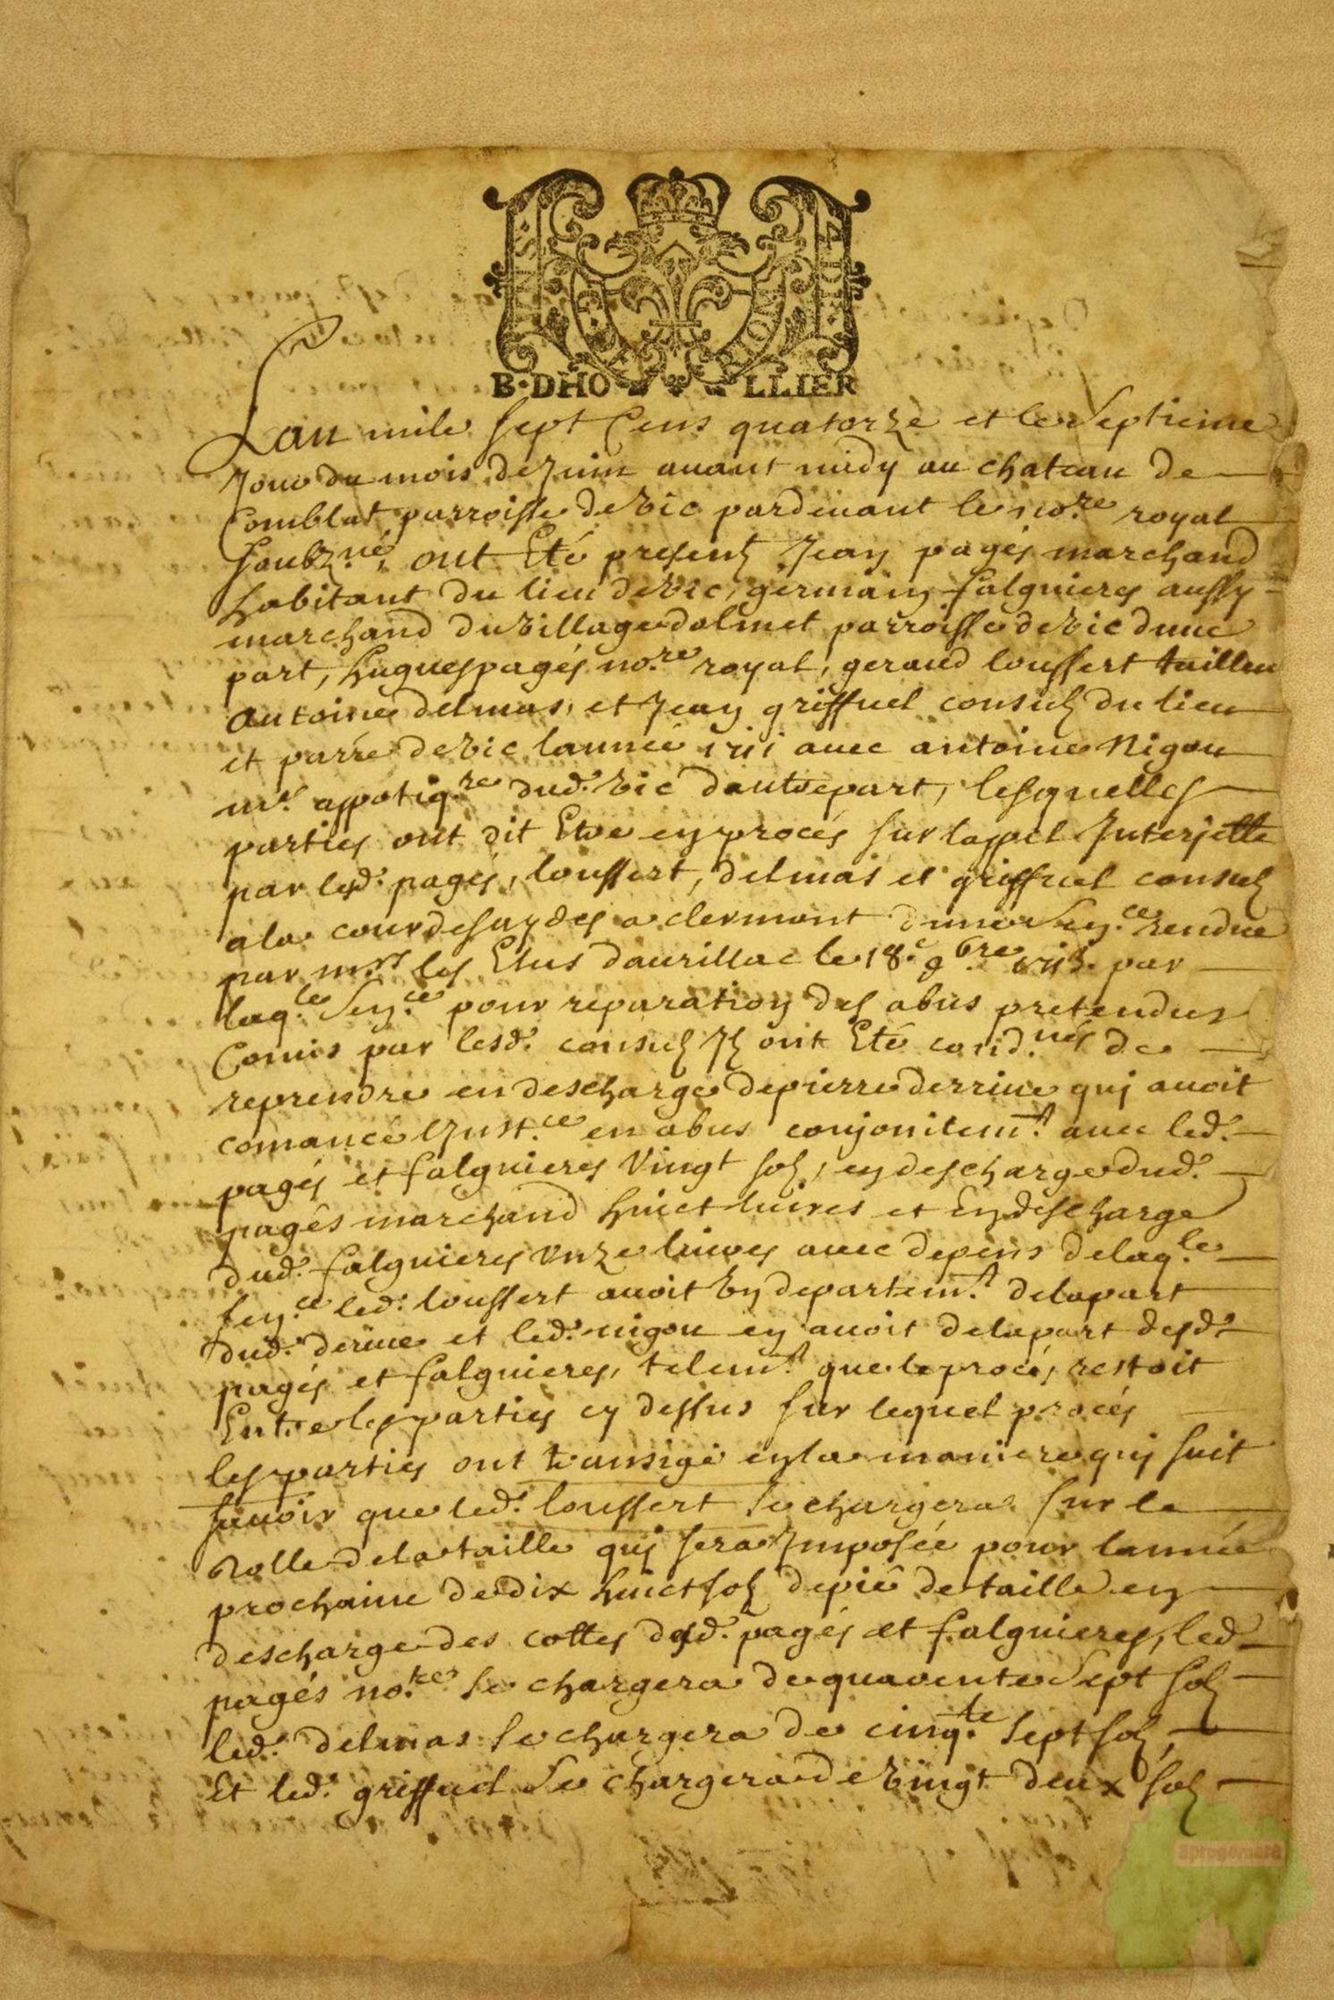 B·DHO LLIER
Lan mile sept Cens quatorze et le Septieme
Jour du mois de Juin avant midy au chateau de
Comblat parroisse de Vic pardevant le no.re royal
soubz.né, ont Eté presentz Jean pagés marchand
habitant du lieu de vic, germain falguieres aussy
marchand du Village dolmet parroisse de vic dune
part, hugues pagés no.re royal, geraud loussert tailleur
antoine delmas, et Jean griffuel consulz du lieu
et parre de vic lannée 1711 avec antoine Nigou
m.e appotiq.re dud. vic dautre part, lesquelles
parties ont dit Etre en procés sur lappel Interjetté
par lesd. pagés, loussert, delmas et griffuel consulz
a la cour des aydes a clermont dune Sen.ce rendue
par mrs les Elus daurillac le 18.e 9bre 1713 par
laq.le Sen.ce pour reparation des abus pretendus
Comis par lesd. consulz Ilz ont Eté cond.nés de
reprendre en descharge de pierre derrive qui avoit
comancé l'Inst.ce en abus conjonitem.t avec led.
pagés et falguieres Vingt solz, en descharge dud.
pagés marchand huict livres et En descharge
dud. falguieres Unze livres avec depens de laq.le
sen.ce led. loussert avoit Un departem.t de la part
dud. derive et led. nigou en avoit de la part desd.
pagés et falguieres, telem.t que le procés restoit
Entre les parties cy dessus sur lequel procés
les parties ont transigé en la maniere qui suit
savoir que led. loussert se chargera sur le
Rolle de la taille qui sera Imposée pour lannée
prochaine de dix huict solz de pié de taille en
descharge des cottes desd. pagés et falguieres, led.
pagés no.re se chargera de quarente Sept solz
led. delmas se chargera de cinq.te sept solz,
Et led. griffuel Se chargera de Vingt deux solz
aprogemere